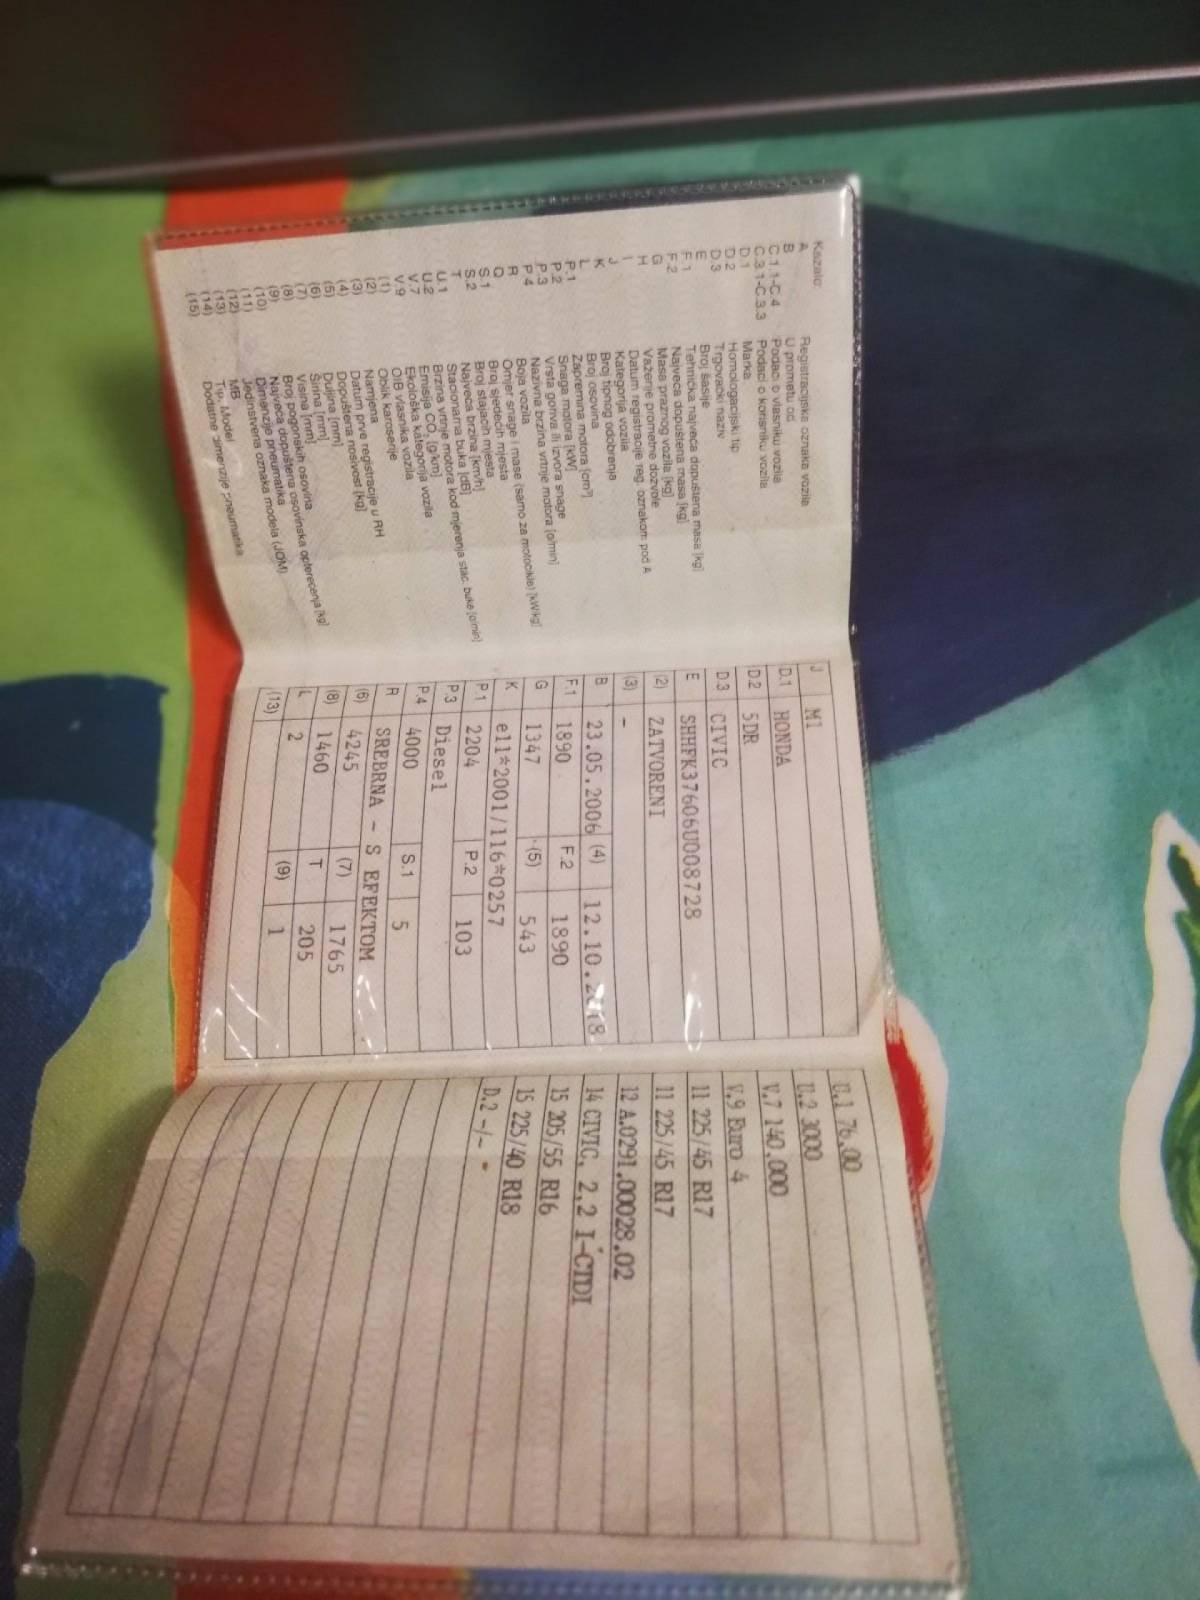 Kazalo:
A Registracijska oznaka vozila
B U prometu od
C.1.1-C.4 Podaci o vlasniku vozila
C.3.1-C.3.3 Podaci o korisniku vozila
D.1 Marka
D.2 Homologacijski tip
D.3 Trgovački naziv
E Broj šasije
F.1 Tehnička najveća dopuštena masa [kg]
F.2 Najveća dopuštena masa [kg]
G Masa praznog vozila [kg]
H Važenje prometne dozvole
I Datum registracije reg. oznakom pod A
J Kategorija vozila
K Broj tipnog odobrenja
L Broj osovina
P.1 Zapremina motora [cm³]
P.2 Snaga motora [kW]
P.3 Vrsta goriva ili izvora snage
P.4 Nazivna brzina vrtnje motora [o/min]
R Boja vozila
Q Omjer snage i mase (samo za motocikle) [kW/kg]
S.1 Broj sjedećih mjesta
S.2 Broj stajaćih mjesta
T Najveća brzina [km/h]
U.1 Stacionarna buka [dB]
U.2 Brzina vrtnje motora kod mjerenja stac. buke [o/min]
V.7 Emisija CO₂ [g/km]
V.9 Ekološka kategorija vozila
(1) OIB vlasnika vozila
(2) Oblik karoserije
(3) Namjena
(4) Datum prve registracije u RH
(5) Dopuštena nosivost [kg]
(6) Duljina [mm]
(7) Širina [mm]
(8) Visina [mm]
(9) Broj pogonskih osovina
(10) Najveća dopuštena osovinska opterećenja [kg]
(11) Dimenzije pneumatika
(12) Jedinstvena oznaka modela (JOM)
(13) MB
(14) Tip, Model
(15) Dodatne dimenzije pneumatika
J M1
D.1 HONDA
D.2 5DR
D.3 CIVIC
E SHHFK37606U008728
(2) ZATVORENI
(3) -
B 23.05.2006 (4) 12.10.2018.
F.1 1890 F.2 1890
G 1347 (5) 543
K e11*2001/116*0257
P.1 2204 P.2 103
P.3 Diesel
P.4 4000 S.1 5
R SREBRNA - S EFEKTOM
(6) 4245 (7) 1765
(8) 1460 T 205
L 2 (9) 1
(13)
U.1 76,00
U.2 3000
V.7 140.000
V.9 Euro 4
11 225/45 R17
11 225/45 R17
12 A.0291.00028.02
14 CIVIC, 2,2 I-CTDI
15 205/55 R16
15 225/40 R18
D.2 -/-